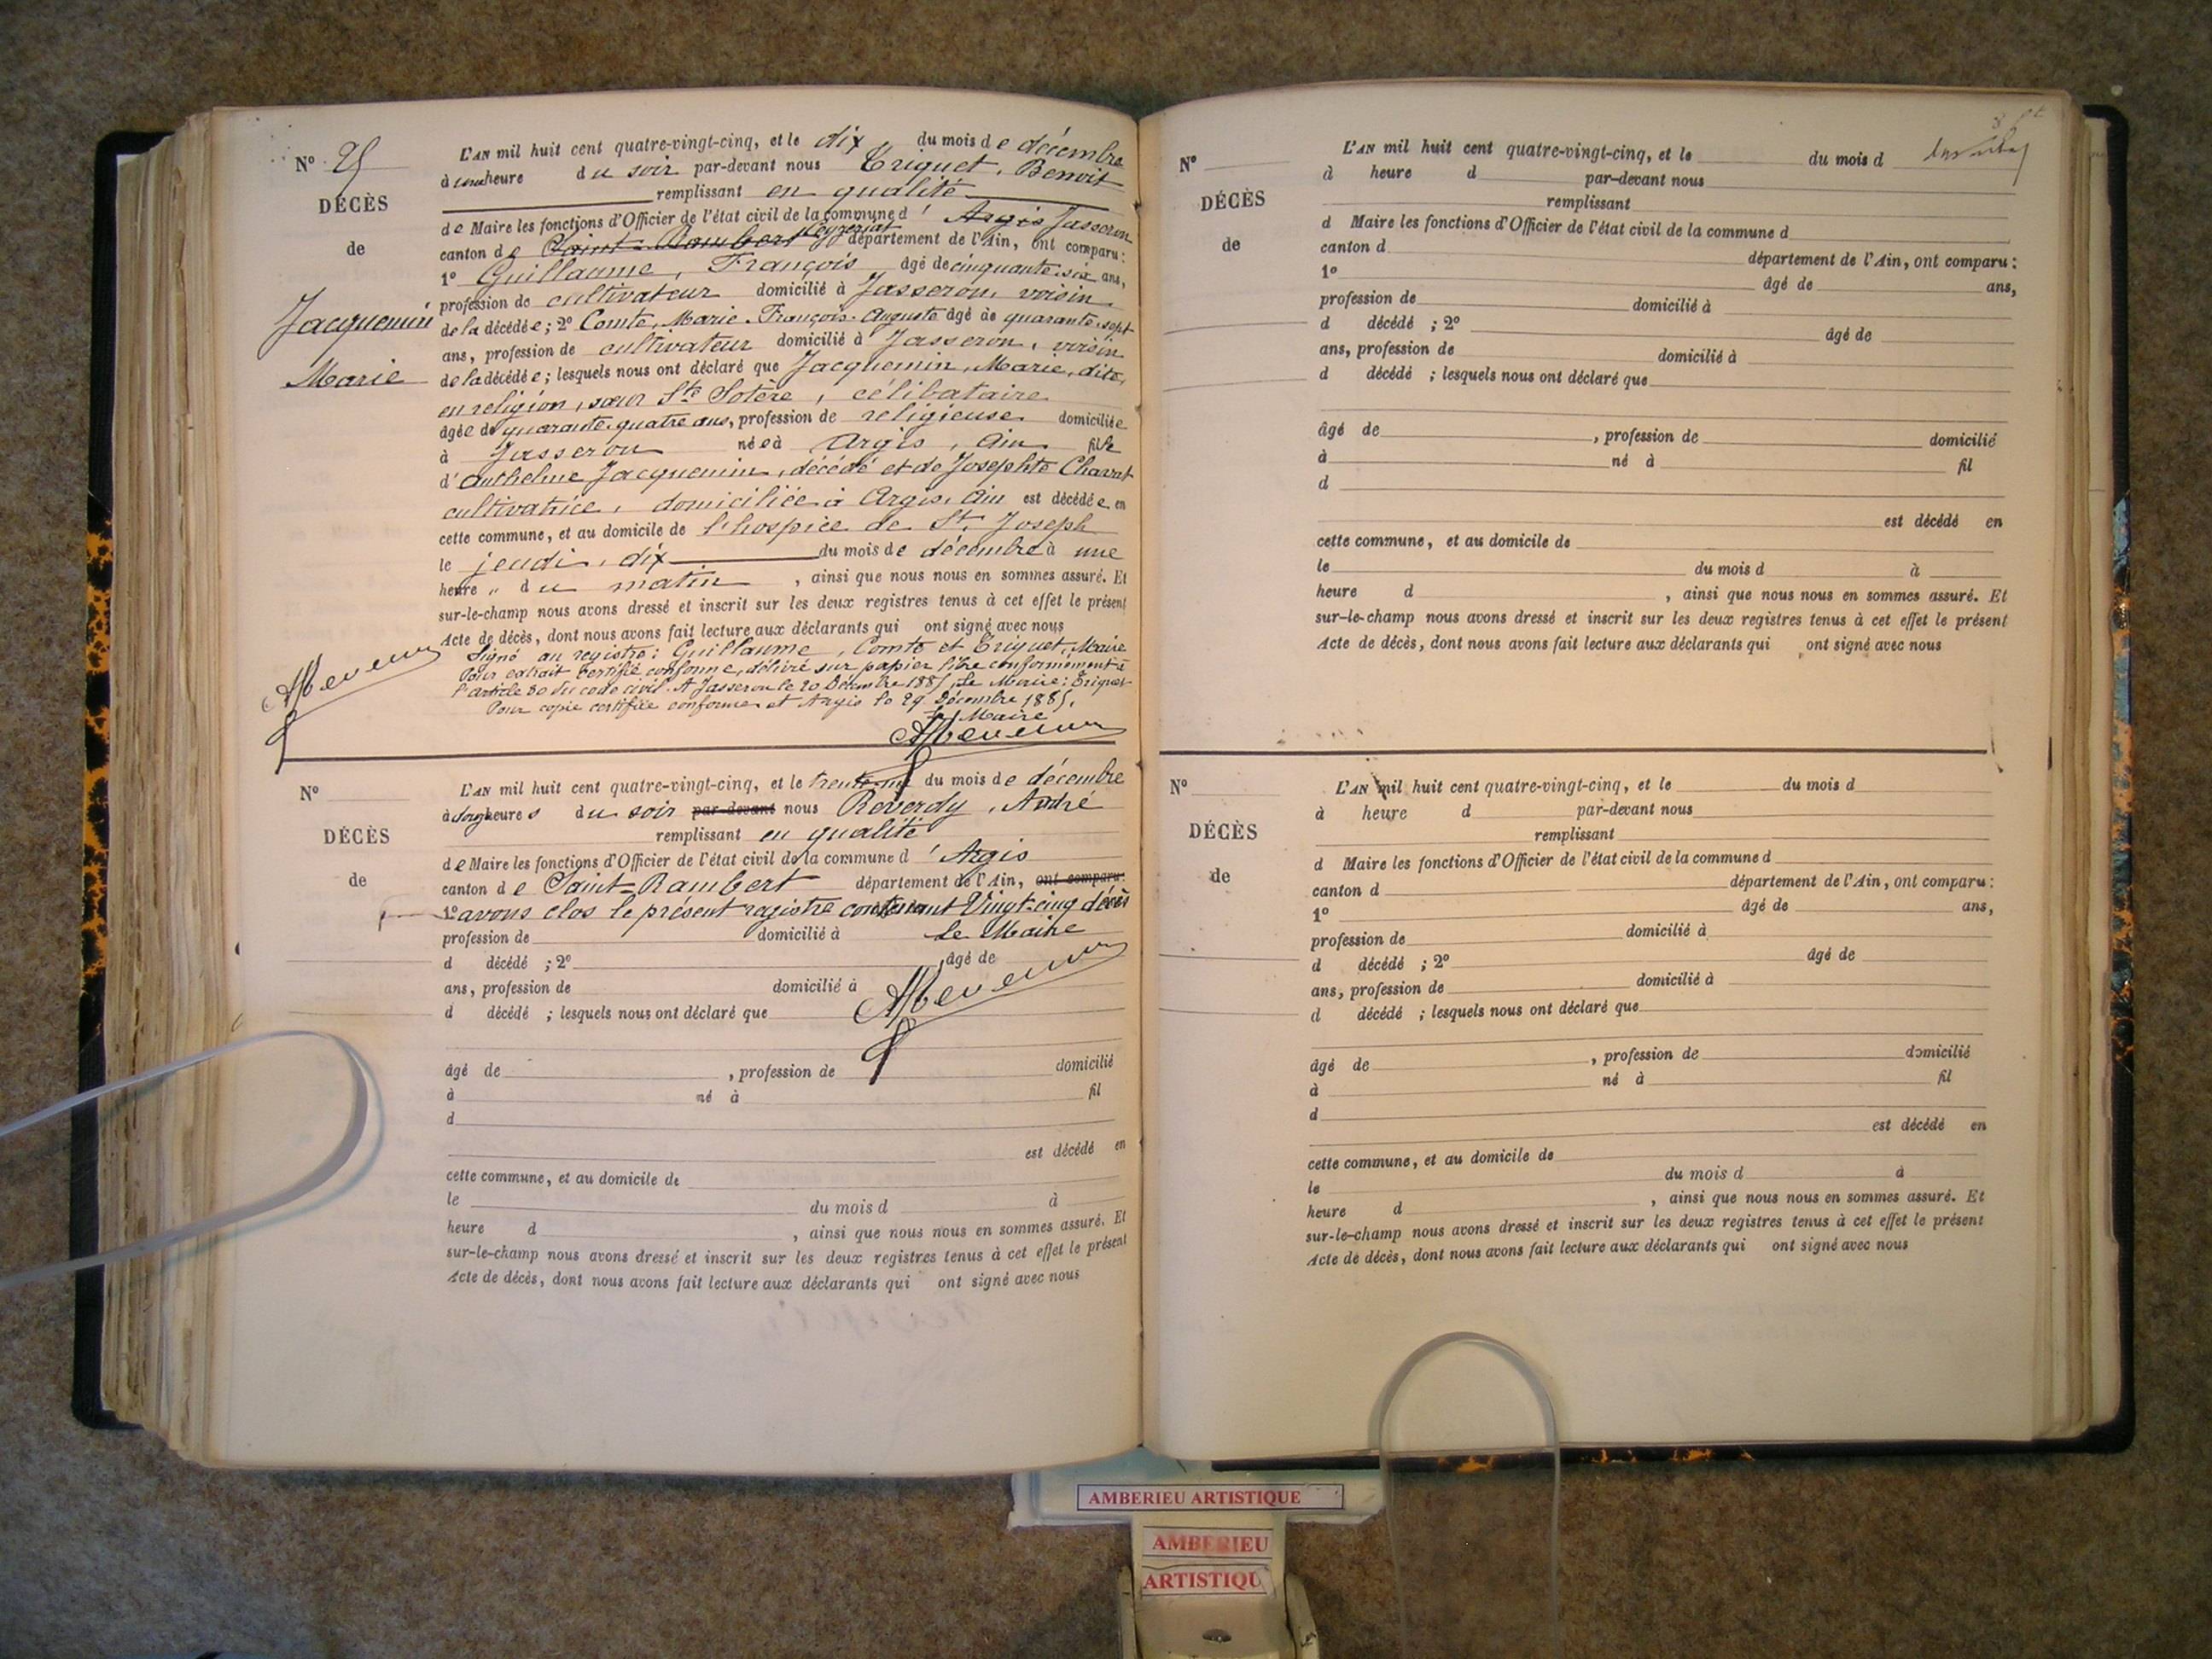 N° 25
DÉCÈS
de
Jacquemin
Marie
L'AN mil huit cent quatre-vingt-cinq, et le dix du mois de décembre
à une heure du soir par-devant nous Triquet, Benoit
remplissant en qualité
de Maire les fonctions d'Officier de l'état civil de la commune d' Argis Jasseron
canton de Saint-Rambert Ceyzeriat département de l'Ain, ont comparu :
1° Guillaume, François âgé de cinquante-six ans,
profession de cultivateur domicilié à Jasseron, voisin
de la décédée ; 2° Comte, Marie-François-Auguste âgé de quarante-sept
ans, profession de cultivateur domicilié à Jasseron, voisin
de la décédée ; lesquels nous ont déclaré que Jacquemin, Marie, dite,
en religion, sœur Ste Sotère, célibataire
âgée de quarante-quatre ans, profession de religieuse domiciliée
à Jasseron née à Argis, Ain fille
d'Anthelme Jacquemin, décédé et de Josephte Charvat
cultivatrice, domiciliée à Argis, Ain est décédée en
cette commune, et au domicile de l'hospice de St Joseph
le jeudi, dix du mois de décembre à une
heure " du matin , ainsi que nous nous en sommes assuré. Et
sur-le-champ nous avons dressé et inscrit sur les deux registres tenus à cet effet le présent
Acte de décès, dont nous avons fait lecture aux déclarants qui ont signé avec nous
Signé au registre : Guillaume, Comte et Triquet, Maire
Pour extrait certifié conforme, délivré sur papier libre conformément à
l'article 80 du code civil. A Jasseron le 20 Décembre 1885, Le Maire : Triquet
Pour copie certifiée conforme et Argis le 29 Décembre 1885.
Le Maire
N°
DÉCÈS
de
L'AN mil huit cent quatre-vingt-cinq, et le trente-un du mois de décembre
à cinq heures du soir par-devant nous Reverdy, André
remplissant en qualité
de Maire les fonctions d'Officier de l'état civil de la commune d' Argis
canton de Saint-Rambert département de l'Ain, ont comparu :
1° avons clos le présent registre contenant Vingt-cinq décès
profession de domicilié à Le Maire
d décédé ; 2° , âgé de
ans, profession de domicilié à
d décédé ; lesquels nous ont déclaré que
âgé de , profession de domicilié
à né à fil
d
est décédé en
cette commune, et au domicile de
le du mois d à
heure d , ainsi que nous nous en sommes assuré. Et
sur-le-champ nous avons dressé et inscrit sur les deux registres tenus à cet effet le présent
Acte de décès, dont nous avons fait lecture aux déclarants qui ont signé avec nous
N°
DÉCÈS
de
L'AN mil huit cent quatre-vingt-cinq, et le du mois d
à heure d par-devant nous
remplissant
d Maire les fonctions d'Officier de l'état civil de la commune d
canton d département de l'Ain, ont comparu :
1° âgé de ans,
profession de domicilié à
d décédé ; 2° âgé de
ans, profession de domicilié à
d décédé ; lesquels nous ont déclaré que
âgé de , profession de domicilié
à né à fil
d
est décédé en
cette commune, et au domicile de
le du mois d à
heure d , ainsi que nous nous en sommes assuré. Et
sur-le-champ nous avons dressé et inscrit sur les deux registres tenus à cet effet le présent
Acte de décès, dont nous avons fait lecture aux déclarants qui ont signé avec nous
N°
DÉCÈS
de
L'AN mil huit cent quatre-vingt-cinq, et le du mois d
à heure d par-devant nous
remplissant
d Maire les fonctions d'Officier de l'état civil de la commune d
canton d département de l'Ain, ont comparu :
1° âgé de ans,
profession de domicilié à
d décédé ; 2° âgé de
ans, profession de domicilié à
d décédé ; lesquels nous ont déclaré que
âgé de , profession de domicilié
à né à fil
d
est décédé en
cette commune, et au domicile de
le du mois d à
heure d , ainsi que nous nous en sommes assuré. Et
sur-le-champ nous avons dressé et inscrit sur les deux registres tenus à cet effet le présent
Acte de décès, dont nous avons fait lecture aux déclarants qui ont signé avec nous
AMBERIEU ARTISTIQUE
AMBERIEU
ARTISTIQU